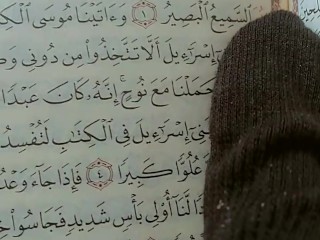 السَّمِيعُ الْبَصِيرُ ١ وَءَاتَيْنَا مُوسَى
إِسْرَٰٓءِيلَ أَلَّا تَتَّخِذُوا۟ مِن دُونِى
حَمَلْنَا مَعَ نُوحٍ إِنَّهُۥ كَانَ عَبْدًا
إِسْرَٰٓءِيلَ فِى ٱلْكِتَٰبِ لَتُفْسِدُ
عُلُوًّا كَبِيرًا ٤ فَإِذَا جَآءَ وَعْدُ
لَّنَآ أُو۟لِى بَأْسٍ شَدِيدٍ فَجَاسُوا۟